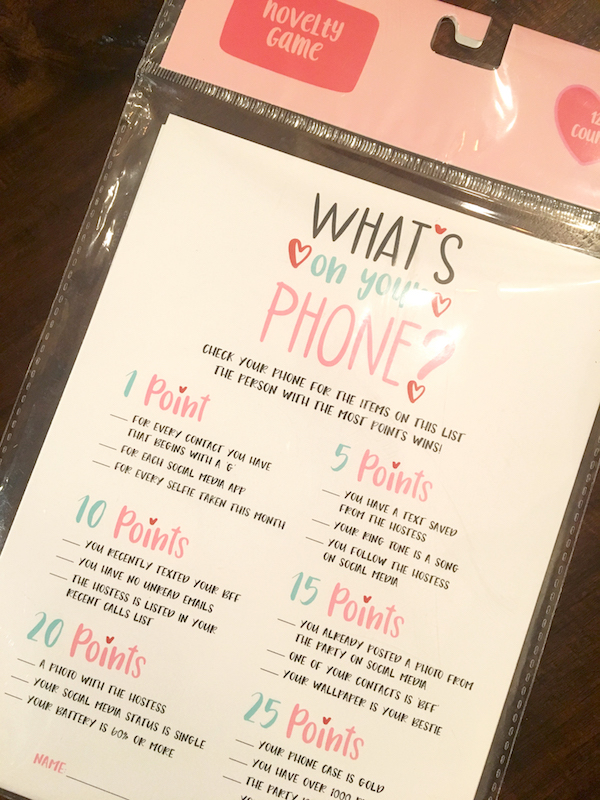 NOVELTY
GAME
12
COU
WHAT'S
on your
PHONE?
CHECK YOUR PHONE FOR THE ITEMS ON THIS LIST
THE PERSON WITH THE MOST POINTS WINS!
1 Point
FOR EVERY CONTACT YOU HAVE
THAT BEGINS WITH A 'G'
FOR EACH SOCIAL MEDIA APP
FOR EVERY SELFIE TAKEN THIS MONTH
5 Points
YOU HAVE A TEXT SAVED
FROM THE HOSTESS
YOUR RING TONE IS A SONG
YOU FOLLOW THE HOSTESS
ON SOCIAL MEDIA
10 Points
YOU RECENTLY TEXTED YOUR BFF
YOU HAVE NO UNREAD EMAILS
THE HOSTESS IS LISTED IN YOUR
RECENT CALLS LIST
15 Points
YOU ALREADY POSTED A PHOTO FROM
THE PARTY ON SOCIAL MEDIA
ONE OF YOUR CONTACTS IS 'BFF'
YOUR WALLPAPER IS YOUR BESTIE
20 Points
A PHOTO WITH THE HOSTESS
YOUR SOCIAL MEDIA STATUS IS SINGLE
YOUR BATTERY IS 60% OR MORE
25 Points
YOUR PHONE CASE IS GOLD
YOU HAVE OVER 1000
THE PARTY
NAME